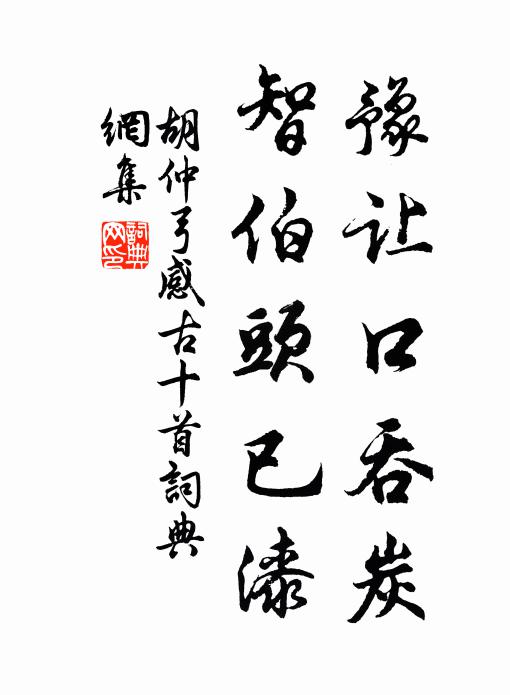 豫让口吞炭
智伯頭已漆
胡仲弓感古十首詞典
網集
詞典网印